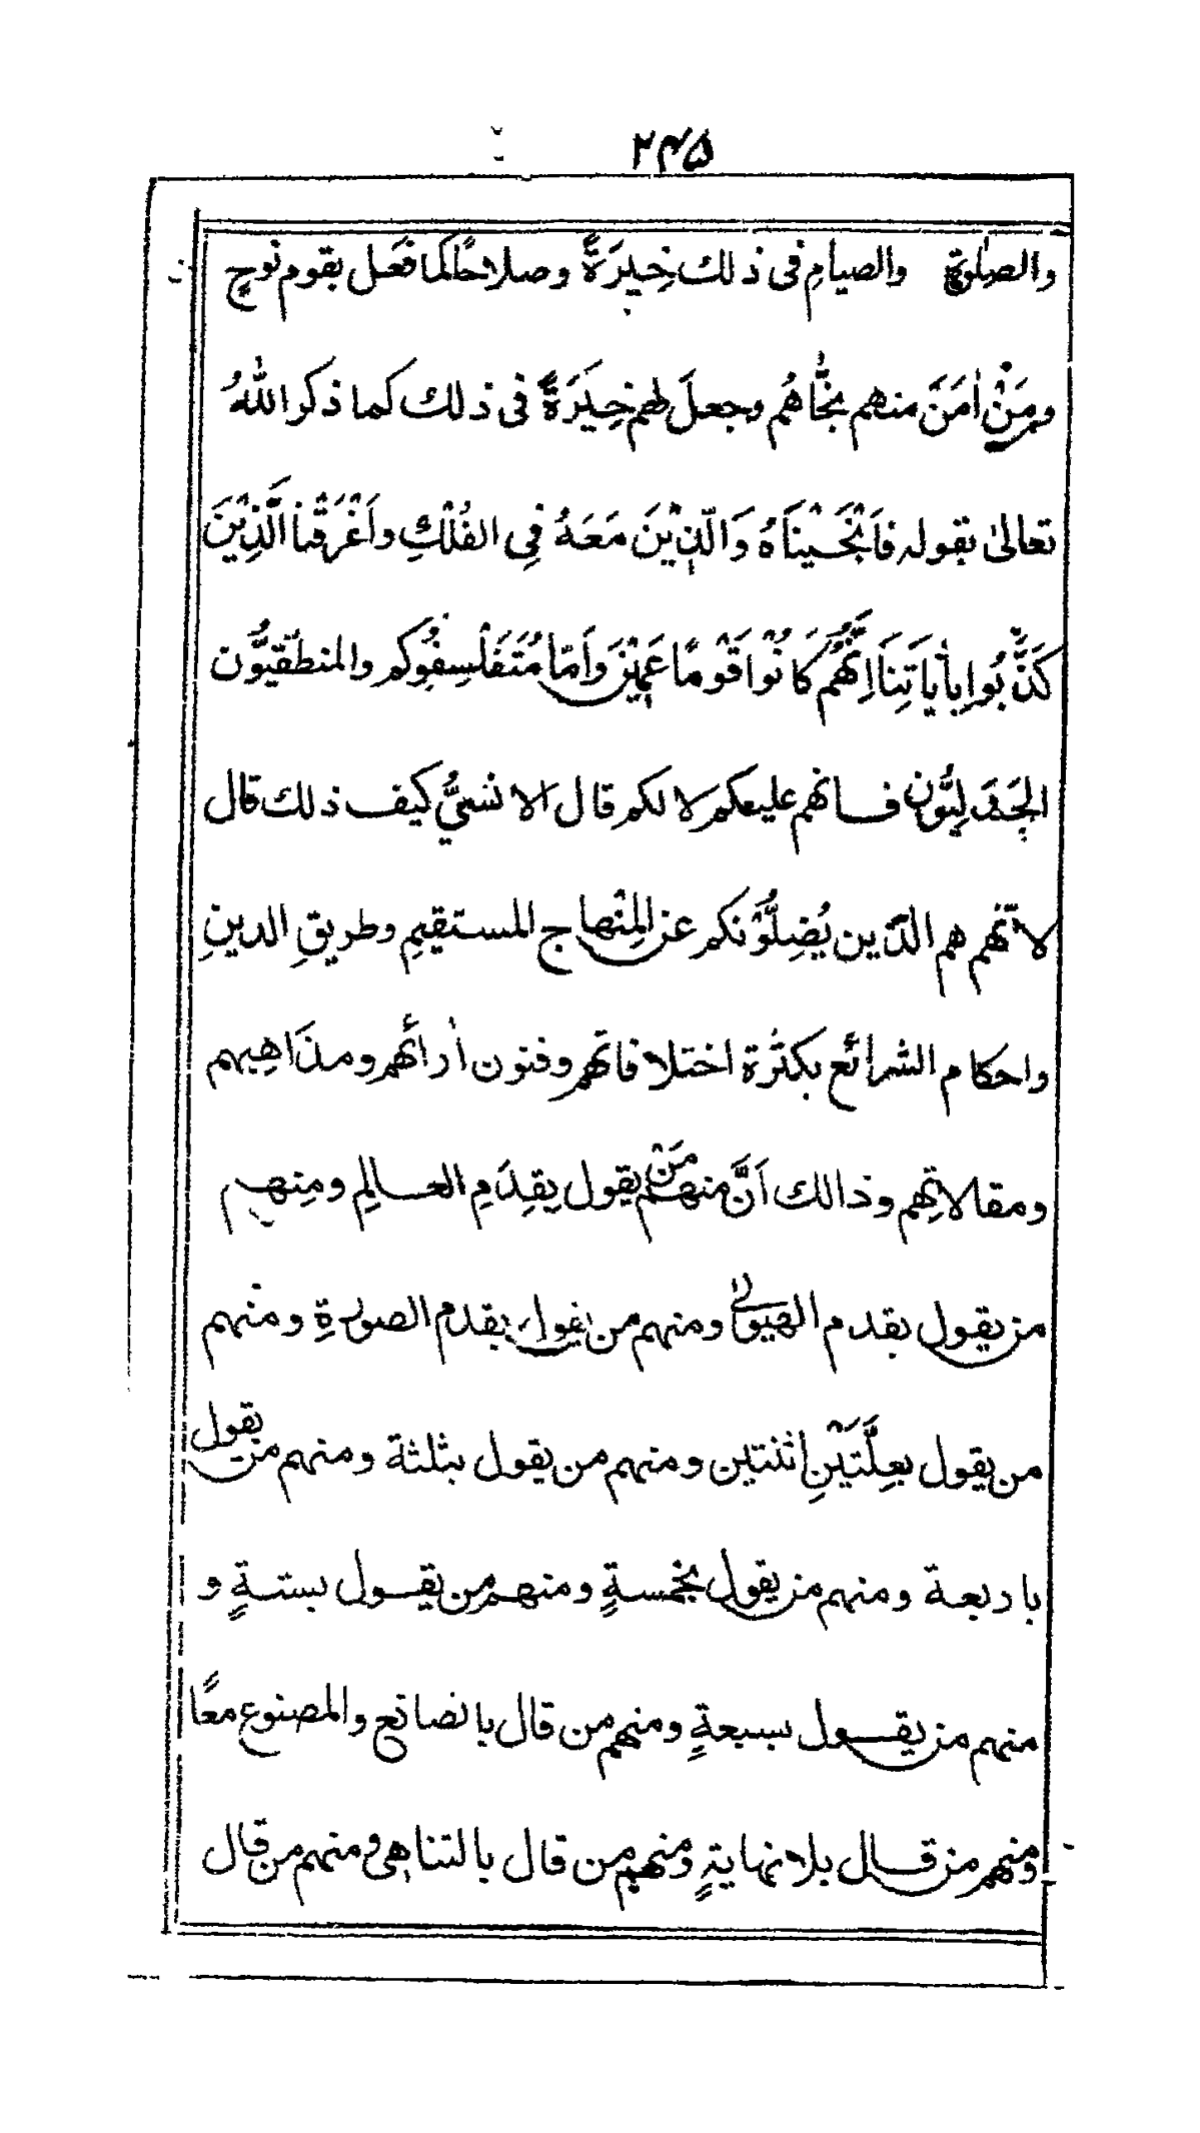 ۲۴۵
والصلوة والصيامِ فى ذلك خِيَرَةً وصلاحًا كما فعَل بقوم نوحٍ
ومَنْ اٰمَنَ منهم نجَّاهُم وجعلَ لهم خِيَرَةً فى ذلك كما ذكر اللهُ
تعالىٰ بقوله فَاَنْجَيْنَاهُ وَالَّذِيْنَ مَعَهُ فِى الفُلْكِ واَغْرَقْنا الَّذِيْنَ
كَذَّبُوا بِأٰيَاتِنَا اِنَّهُمْ كَانُوْا قَوْمًا عَمِيْنَ واَمّا مُتَفَلْسِفُوكم والمنطقيُّون
الجَدَلِيُّون فانهم عليكم لا لكم قال الانسىُّ كيف ذلك قال
لانّهم هم الّذين يُضِلُّوْنكم عن المِنْهاج المستقيمِ وطريقِ الدينِ
واحكام الشرائع بكثرة اختلافاتهم وفنون أرائهم ومذاهِبهم
ومقالاتِهم وذالك اَنَّ منهم مَنْ يقول بِقِدَمِ العالمِ ومِنهم
من يقول بقدم الهيولىٰ ومنهم من يقول بقدم الصورةِ ومنهم
من يقول بعِلَّتَيْنِ اثنتين ومنهم من يقول بثلثة ومنهم من يقول
باربعة ومنهم من يقول بخمسةٍ ومنهم من يقول بستةٍ و
منهم من يقول بسبعةٍ ومنهم من قال بالصانع والمصنوع معًا
ومنهم من قال بلانهايةٍ ومنهم من قال بالتناهى ومنهم من قال